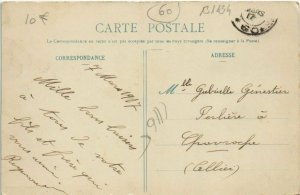 10€
60
R1434
CARTE POSTALE
La Correspondance au recto n'est pas acceptée par tous les pays étrangers (Se renseigner à la Poste)
CORRESPONDANCE
ADRESSE
7 Mars 1917
Mille bons baisers
à tous de votre
fils et frère qui
vous aime
Raymond
(1916)
Mlle Gabrielle Génestier
Perlière à
Chavroche
(Allier)